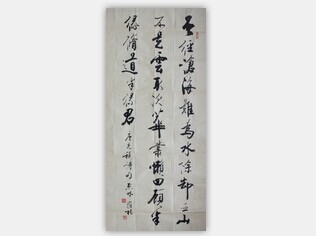 曾經滄海難為水除卻巫山
不是雲取次華叢懶回顧半
緣脩道半緣君
唐元稹詩句